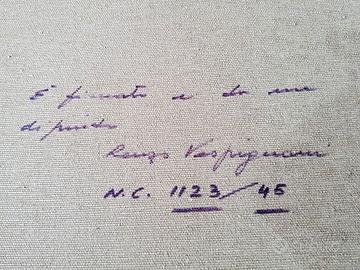 È firmato e da me
dipinto
Renzo Vespignani
N.C. 1123/45